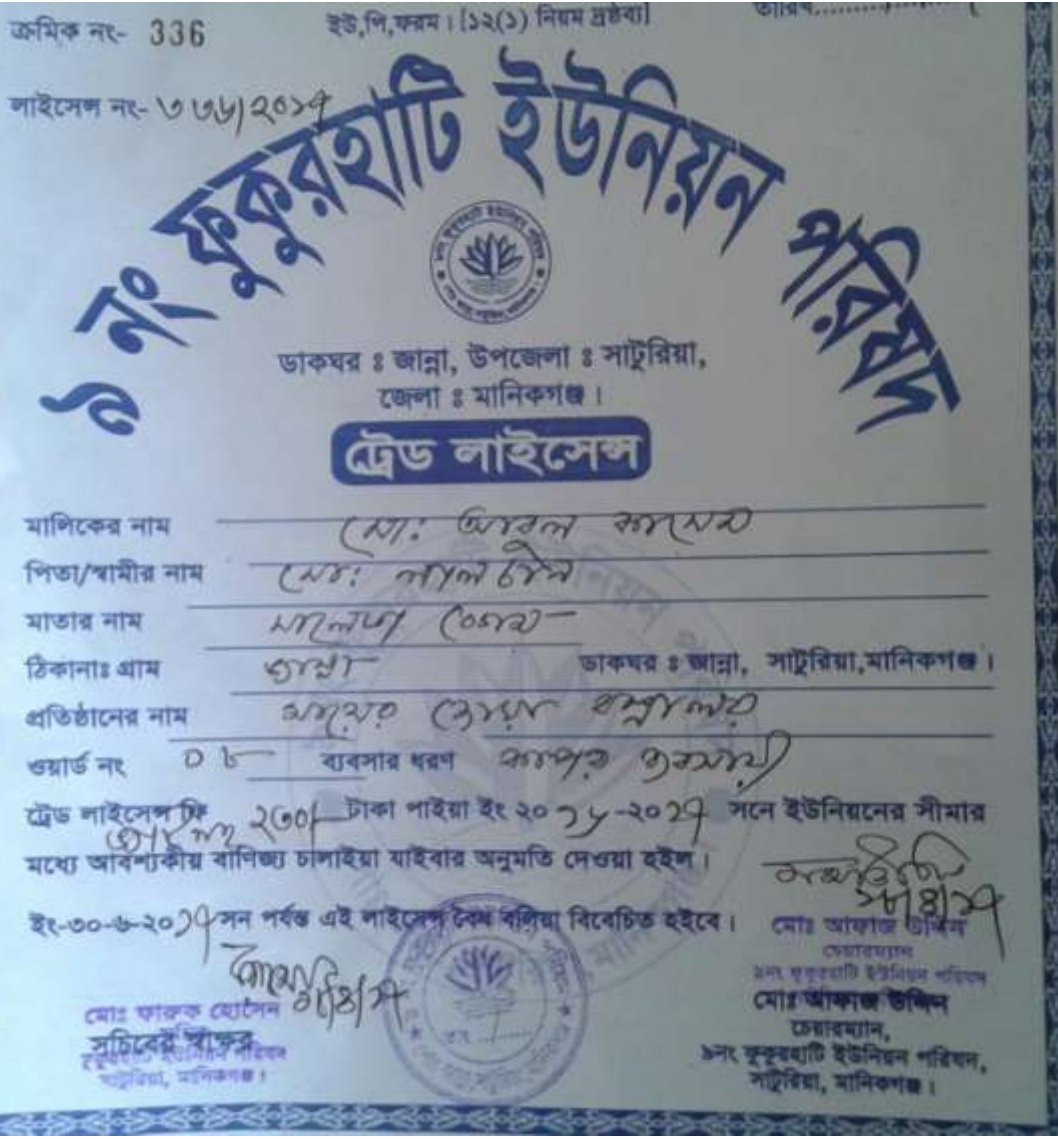 ক্রমিক নং- 336
ইউ,পি,ফরম। [১২(১) নিয়ম দ্রষ্টব্য]
তারিখ
লাইসেন্স নং- ৩৩৬/২০১৭
৯ নং ফুকুরহাটি ইউনিয়ন পরিষদ
ডাকঘর ঃ জান্না, উপজেলা ঃ সাটুরিয়া,
জেলা ঃ মানিকগঞ্জ।
ট্রেড লাইসেন্স
মালিকের নাম মো: আবুল কাসেম
পিতা/স্বামীর নাম মো: লাল চাঁন
মাতার নাম মালেকা বেগম
ঠিকানাঃ গ্রাম জান্না ডাকঘর ঃ জান্না, সাটুরিয়া,মানিকগঞ্জ।
প্রতিষ্ঠানের নাম মায়ের দোয়া বস্ত্রালয়
ওয়ার্ড নং ০৮ ব্যবসার ধরণ কাপড় ব্যবসায়ী
ট্রেড লাইসেন্স ফি ২৩০/- টাকা পাইয়া ইং ২০১৬-২০১৭ সনে ইউনিয়নের সীমার
মধ্যে আবশ্যকীয় বাণিজ্য চালাইয়া যাইবার অনুমতি দেওয়া হইল।
ইং-৩০-৬-২০১৭ সন পর্যন্ত এই লাইসেন্স বৈধ বলিয়া বিবেচিত হইবে।
মোঃ আফাজ উদ্দিন
চেয়ারম্যান
৯নং ফুকুরহাটি ইউনিয়ন পরিষদ
মোঃ ফারুক হোসেন
সচিবের স্বাক্ষর
ফুকুরহাটি ইউনিয়ন পরিষদ
সাটুরিয়া, মানিকগঞ্জ।
মোঃ আফাজ উদ্দিন
চেয়ারম্যান,
৯নং ফুকুরহাটি ইউনিয়ন পরিষদ,
সাটুরিয়া, মানিকগঞ্জ।